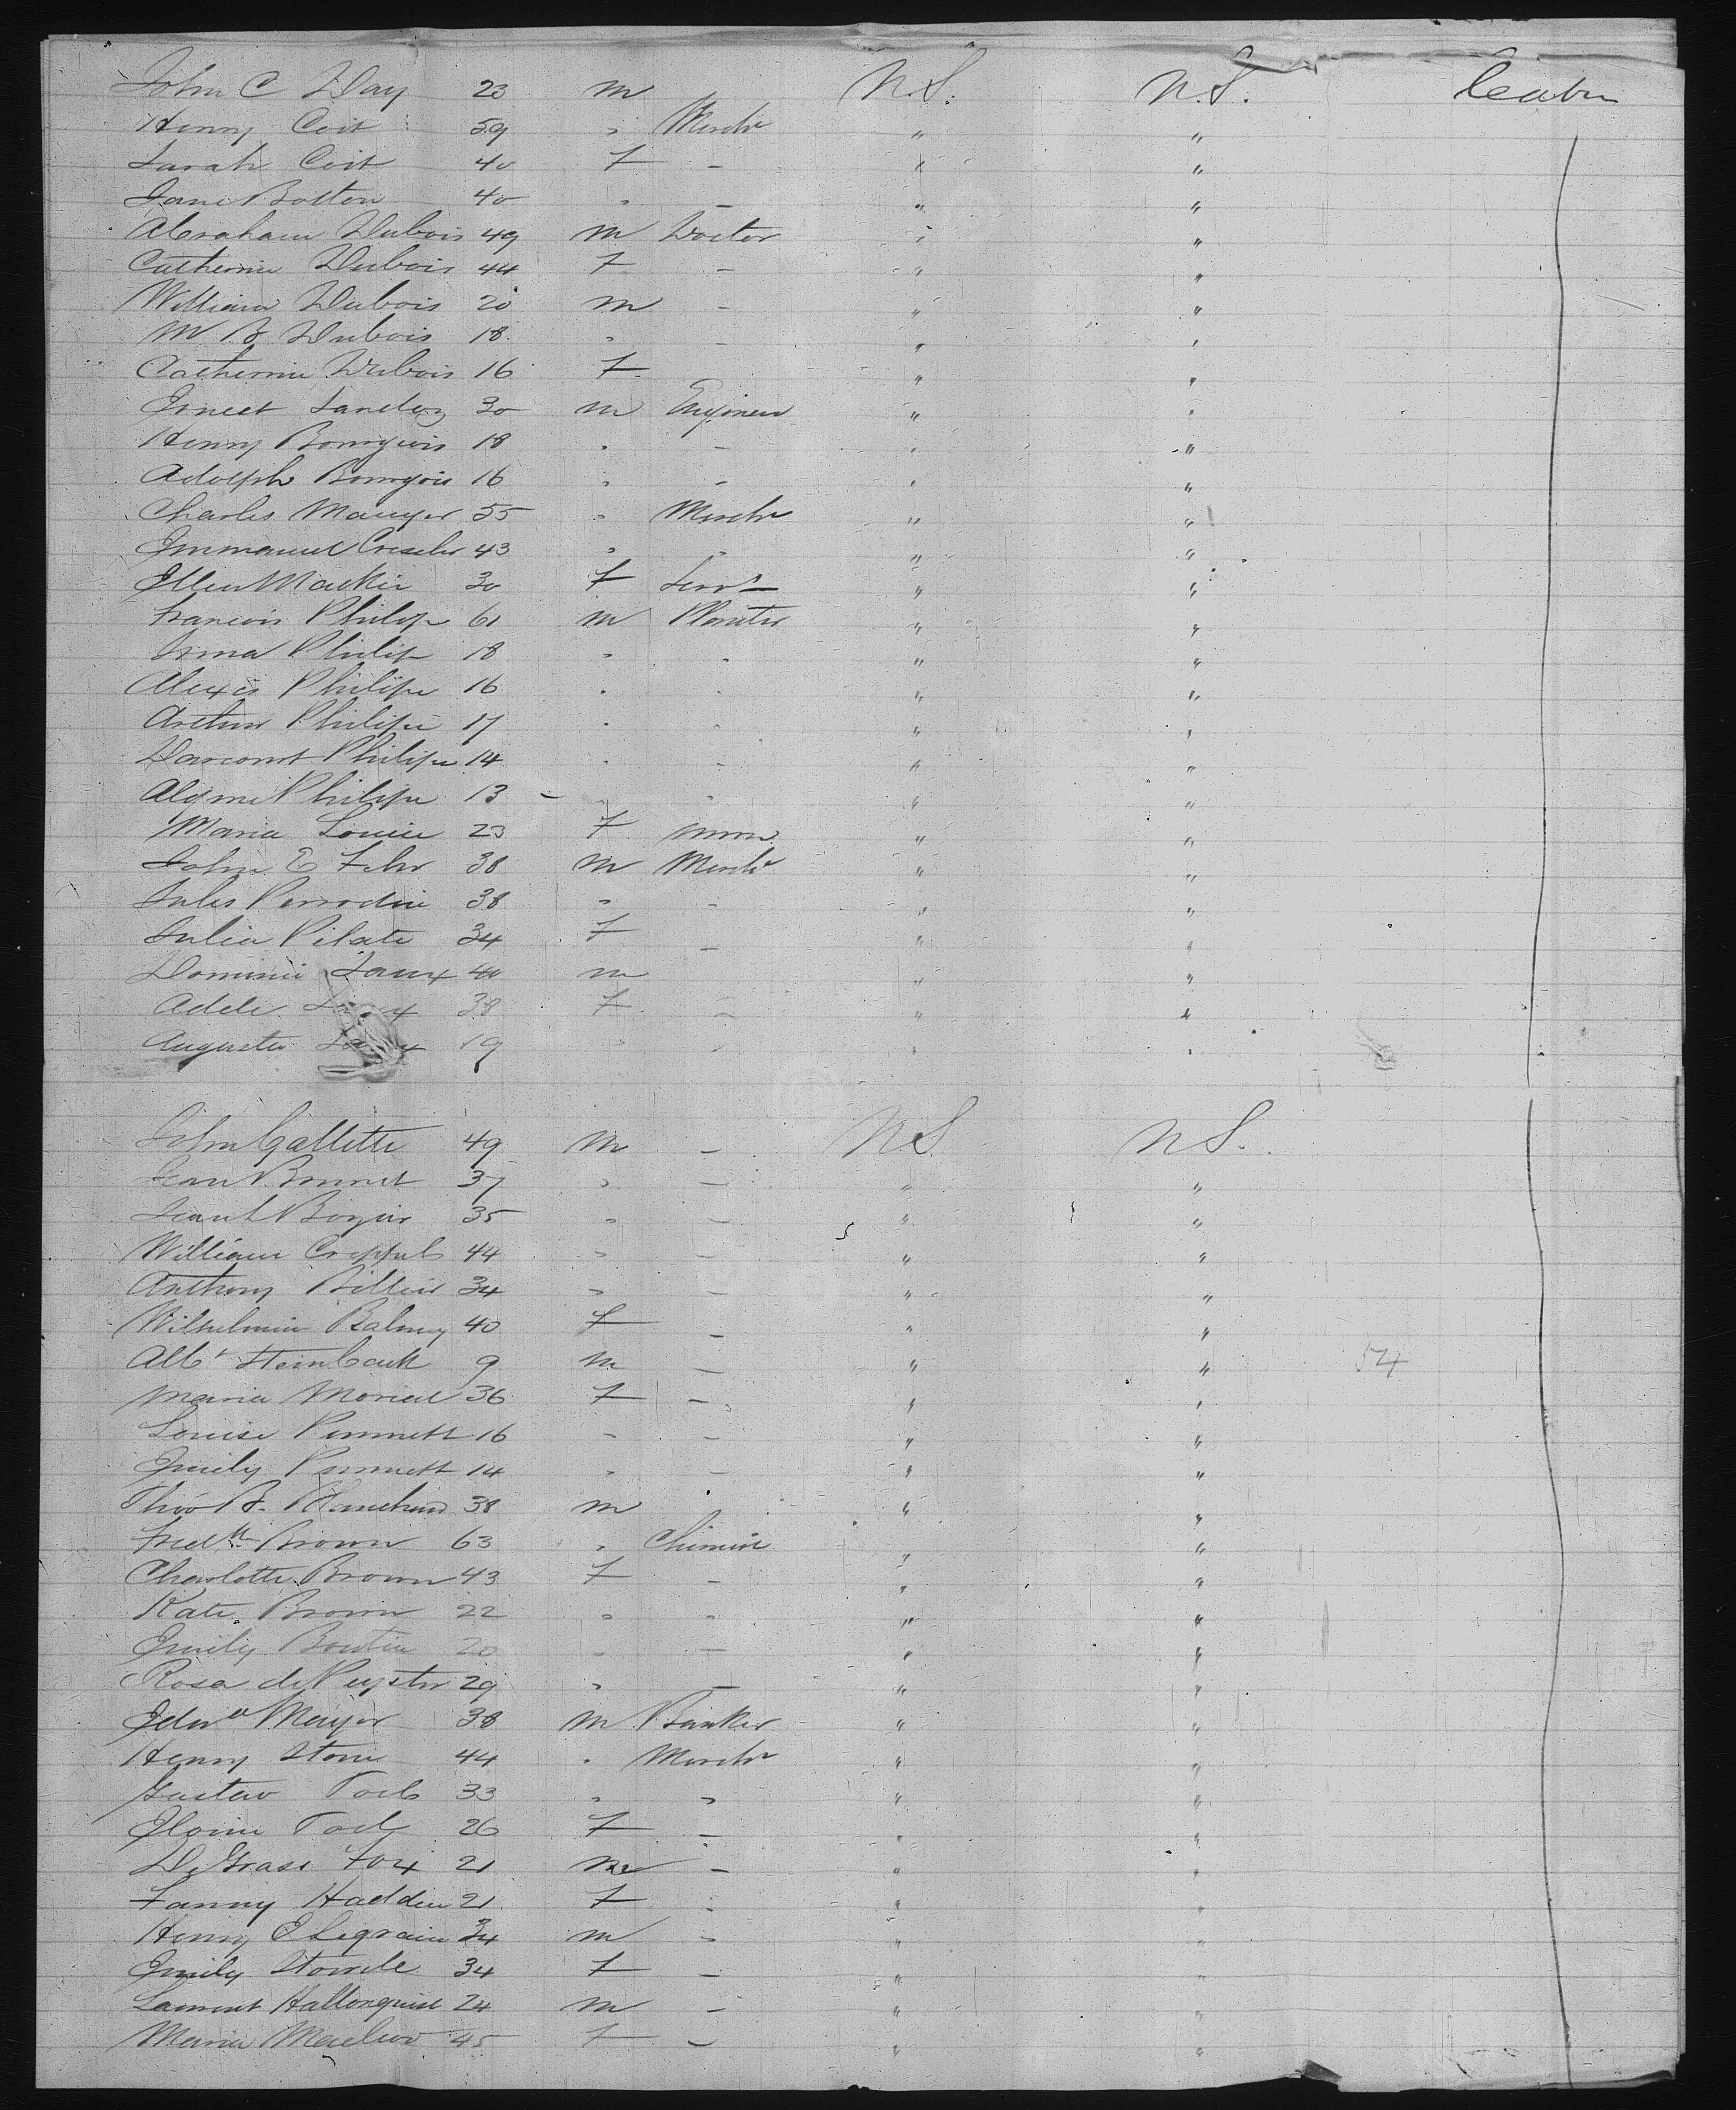 John C Day 23 m U.S. U.S. Cabin
Henry Coit 59 " Merch " "
Sarah Coit 40 F - " "
Jane Bolton 40 " - " "
Abraham Dubois 49 m Doctor " "
Catherine Dubois 44 F - " "
William Dubois 20 m - " "
M B Dubois 18 " - " "
Catherine Dubois 16 F " "
Ernest Sandoz 30 m Engineer " "
Henry Bourgeois 18 " - " "
Adolph Bourgois 16 " - " "
Charles Mauger 55 " Merch " "
Emmanuel 43 " " " "
Ellen Mackin 30 F Servt " "
Francois Philip 61 m Planter " "
Irma Philip 18 " " " "
Alexis Philipe 16 " " " "
Arthur Philipe 17 " " " "
Darcourt Philipe 14 " " " "
Philipe 13 " " " "
Maria Louise 23 F " "
John E Fehr 38 m Merch " "
Jules Perrodin 38 " - " "
Julia Pilate 34 F - " "
Dominie Saux 40 m " "
Adele 38 F - " "
Augusta 19 " " " "
John Gallette 49 m - U S U S.
Jean Bonnet 37 " - " "
Jean Boyer 35 " - " "
William 44 " - " "
Anthony 34 " - " "
Wilhelmin Balmey 40 F - " "
Albt Steinback 9 m - " " 54
Maria Moreau 36 F - " "
Louise Pummett 16 - - " "
Emily Pummett 14 " - " "
Theo B. Blanchard 38 m " "
Fredk Brown 63 " Chimist " "
Charlotte Brown 43 F - " "
Kate Brown 22 " " " "
Emily Boutin 20 " - " "
Rosa de Peyster 29 " - " "
Edwd Mayer 38 m Banker " "
Henry Stone 44 " Merch " "
Gustav 33 " " " "
26 F - " "
De Grass Fox 21 m - " "
Fanny Hadden 21 F " "
Henry E Legrain 34 m - " "
Emily 34 F - " "
Laurent Hallonquist 24 m - " "
Maria 45 F - " "